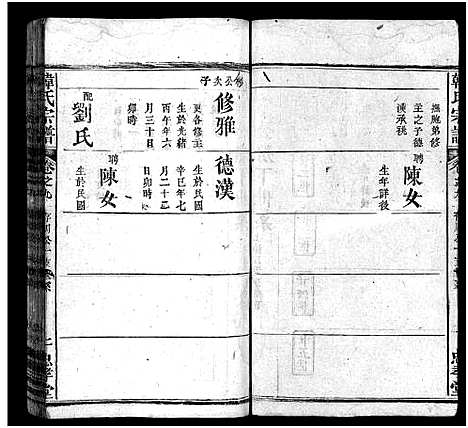 韓氏宗譜
撫胞弟修
主之子德
漢承祧
聘
陳女
生年詳後
公次子
修雅
更名修主
生於光緒
丙午年六
月三十日
卯時
配
劉氏
德漢
生於民國
辛巳年七
月二十三
日卯時
聘
陳女
生於民國
韓氏宗譜
卷之九
忠孝堂